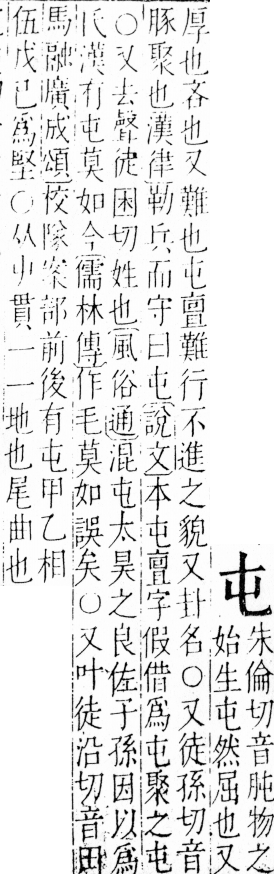 屯
朱倫切音肫物之
始生屯然屈也又
厚也吝也又難也屯亶難行不進之貌又卦名○又徒孫切音
豚聚也漢律勒兵而守曰屯說文本屯亶字假借爲屯聚之屯
○又去聲徒困切姓也風俗通混屯太昊之良佐子孫因以爲
氏漢有屯莫如今儒林傳作毛莫如誤矣○又叶徒沿切音田
馬融廣成頌校隊案部前後有屯甲乙相
伍戊己爲堅○从屮貫一一地也尾曲也